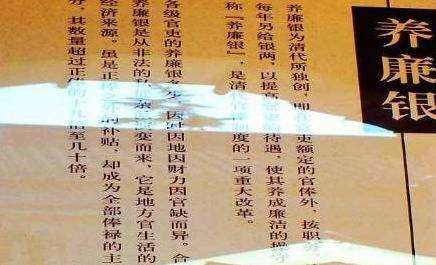 养廉银
养廉银为清代所独创，即在吏额定的官俸外，按职务，
每年另给银两，以提高待遇，使其养成廉洁的操守
称“养廉银”，是清度的一项重大改革。
各级官吏的养廉银多少，因时因地因财力因官缺而异。合
廉银是从非法的变而来，它是地方官生活的
经济来源。虽是正的补贴，却成为全部俸禄的主
分，其数量超过正倍至几十倍。